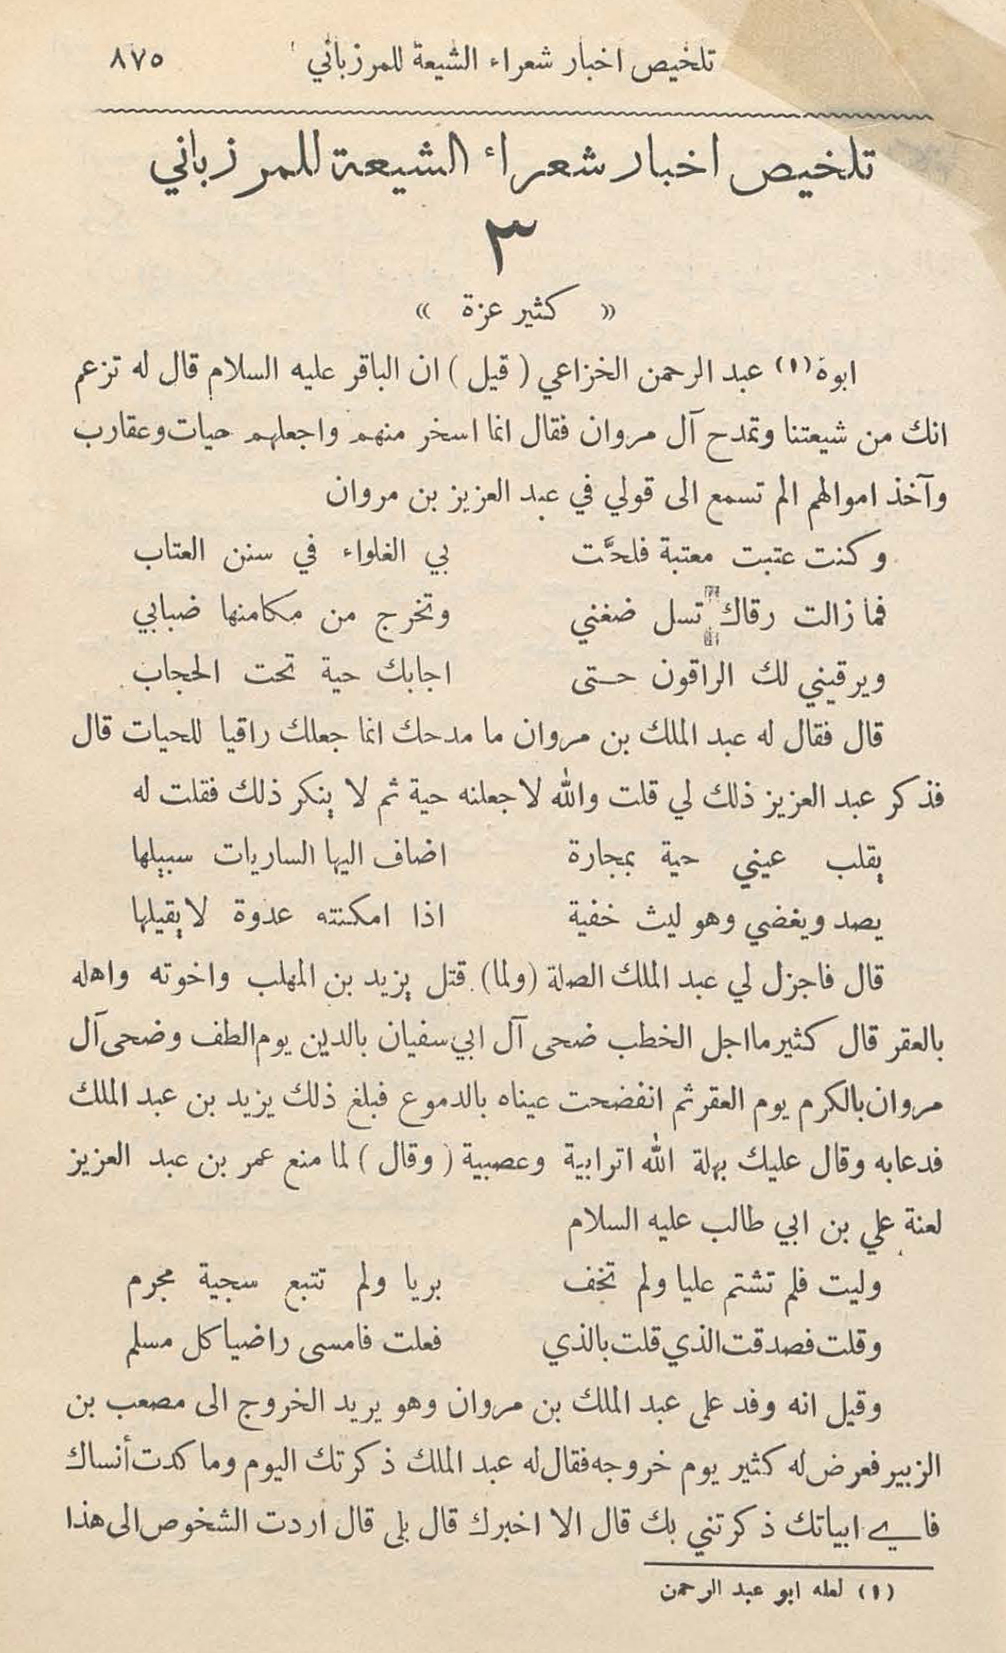 تلخيص اخبار شعراء الشيعة للمرزباني ٨٧٥
تلخيص اخبار شعراء الشيعة للمرزباني
٣
« كثير عزة »
ابوه (١) عبد الرحمن الخزاعي ( قيل ) ان الباقر عليه السلام قال له تزعم
انك من شيعتنا وتمدح آل مروان فقال انما اسخر منهم واجعلهم حيات وعقارب
وآخذ اموالهم الم تسمع الى قولي في عبد العزيز بن مروان
وكنت عتبت معتبة فلجَّت بي الغلواء في سنن العتاب
فما زالت رقاك تسل ضغني وتخرج من مكامنها ضبابي
ويرقيني لك الراقون حتى اجابك حية تحت الحجاب
قال فقال له عبد الملك بن مروان ما مدحك انما جعلك راقيا للحيات قال
فذكر عبد العزيز ذلك لي قلت والله لاجعلنه حية ثم لا ينكر ذلك فقلت له
يقلب عيني حية بمجارة اضاف اليها الساريات سبيلها
يصد ويغضي وهو ليث خفية اذا امكنته عدوة لا يقيلها
قال فاجزل لي عبد الملك الصلة (ولما) قتل يزيد بن المهلب واخوته واهله
بالعقر قال كثير ما اجل الخطب ضحى آل ابي سفيان بالدين يوم الطف وضحى آل
مروان بالكرم يوم العقر ثم انفضحت عيناه بالدموع فبلغ ذلك يزيد بن عبد الملك
فدعا به وقال عليك بهلة الله اترابية وعصبية ( وقال ) لما منع عمر بن عبد العزيز
لعنة علي بن ابي طالب عليه السلام
وليت فلم تشتم عليا ولم تخف بريا ولم تتبع سجية مجرم
وقلت فصدقت الذي قلت بالذي فعلت فامسى راضيا كل مسلم
وقيل انه وفد على عبد الملك بن مروان وهو يريد الخروج الى مصعب بن
الزبير فعرض له كثير يوم خروجه فقال له عبد الملك ذكرتك اليوم وما كدت أنساك
فاي ابياتك ذكرتني بك قال الا اخبرك قال بلى قال اردت الشخوص الى هذا
(١) لعله ابو عبد الرحمن